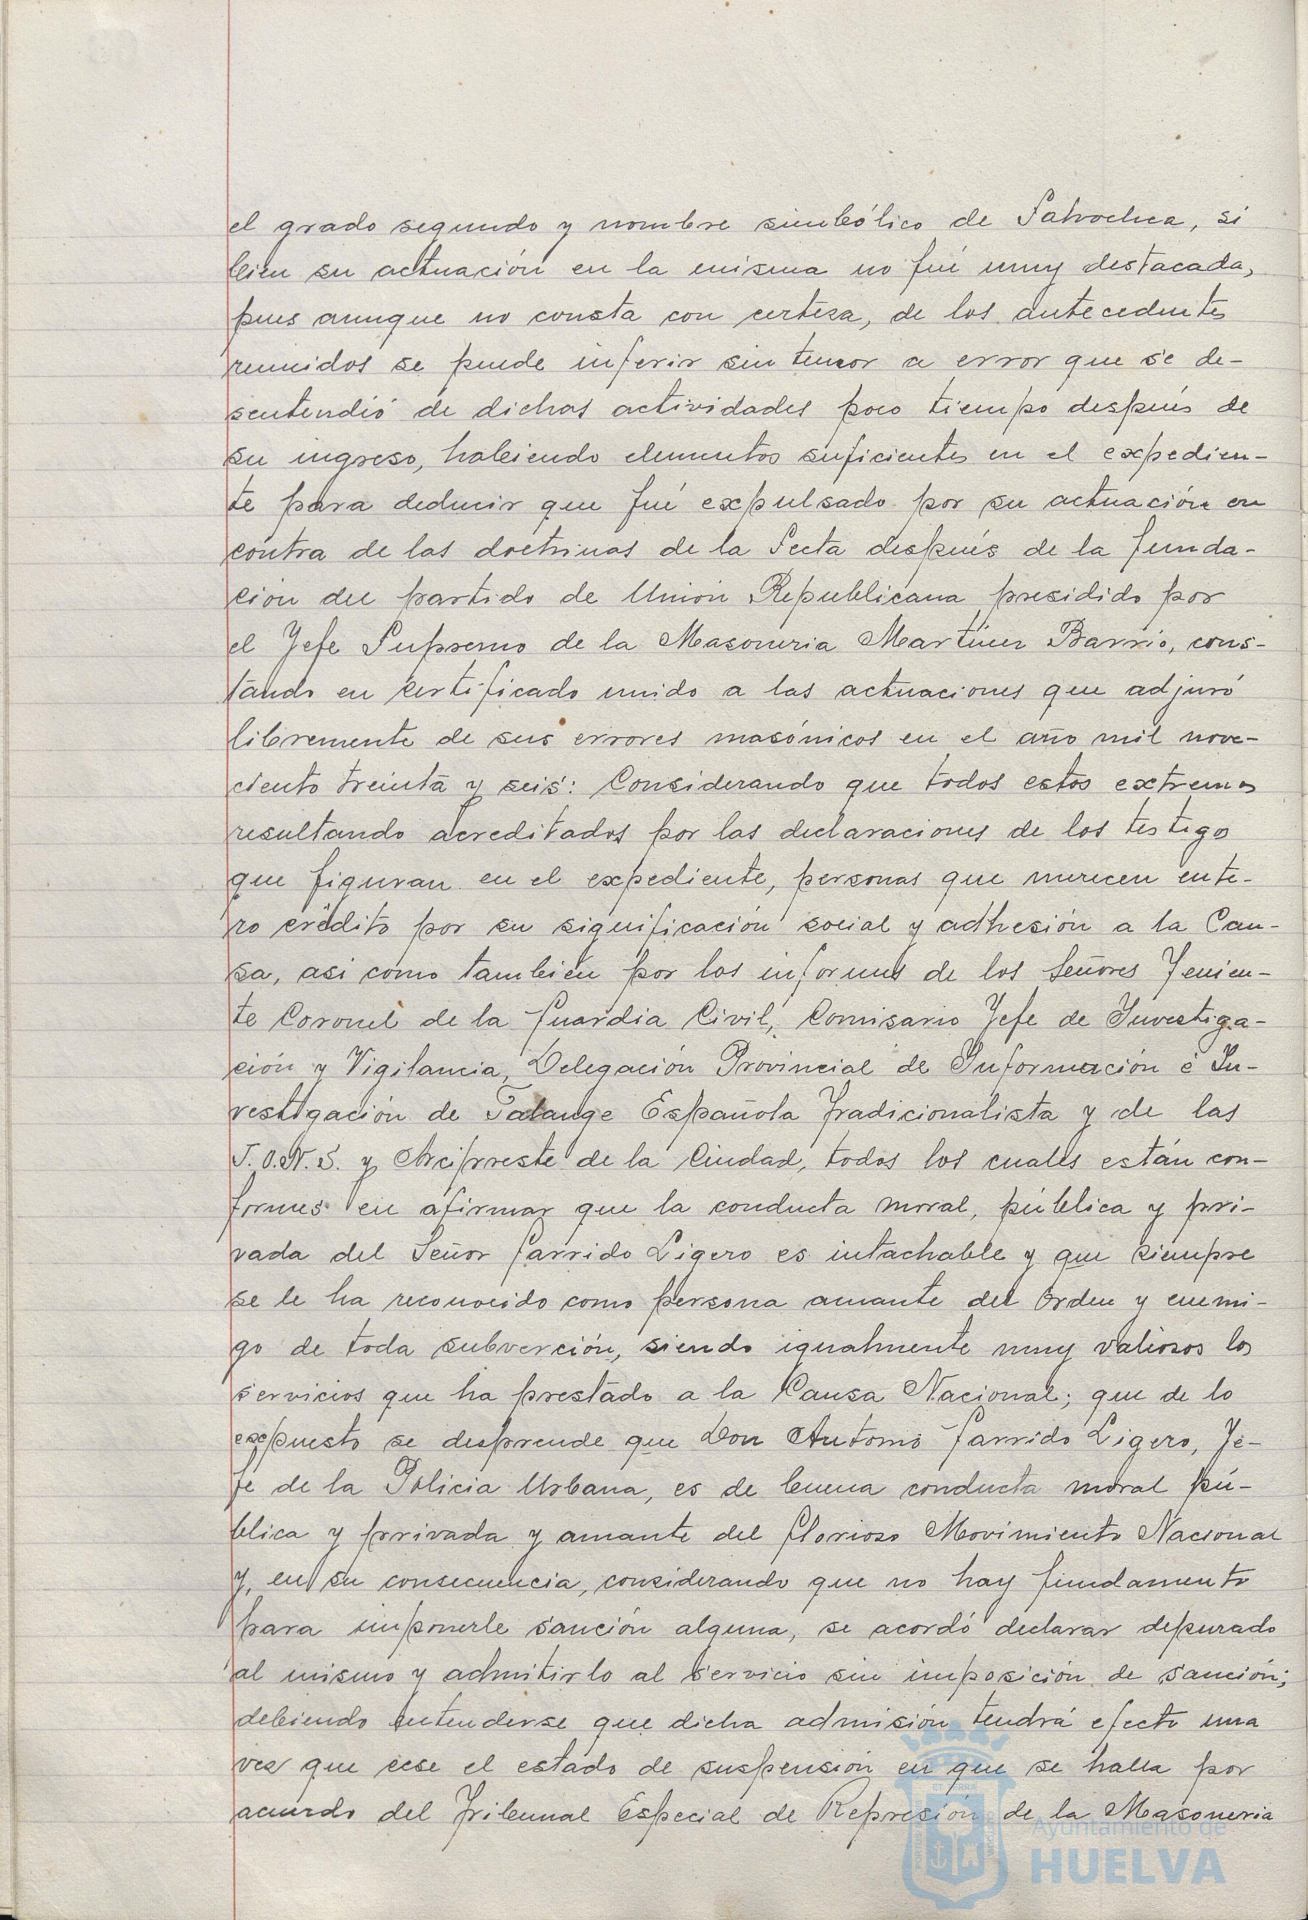 el grado segundo y nombre simbólico de Salvochea, si
bien su actuación en la misma no fué muy destacada,
pues aunque no consta con certeza, de los antecedentes
reunidos se puede inferir sin temor a error que se de-
sentendió de dichas actividades poco tiempo después de
su ingreso, habiendo elementos suficientes en el expedien-
te para deducir que fué expulsado por su actuación en
contra de las doctrinas de la Secta después de la funda-
ción del partido de Unión Republicana presidido por
el Jefe Supremo de la Masoneria Martínez Barrio, cons-
tando en certificado unido a las actuaciones que adjuró
libremente de sus errores masónicos en el año mil nove-
ciento treinta y seis: Considerando que todos estos extremos
resultando acreditados por las declaraciones de los testigos
que figuran en el expediente, personas que merecen ente-
ro crédito por su significación social y adhesión a la Cau-
sa, asi como también por los informes de los Señores Tenien-
te Coronel de la Guardia Civil, Comisario Jefe de Investiga-
ción y Vigilancia, Delegación Provincial de Información é In-
vestigación de Falange Española Tradicionalista y de las
J.O.N.S. y Arcipreste de la Ciudad, todos los cuales están con-
formes en afirmar que la conducta moral, pública y pri-
vada del Señor Garrido Ligero es intachable y que siempre
se le ha reconocido como persona amante del Orden y enemi-
go de toda subverción, siendo igualmente muy valiosos los
servicios que ha prestado a la Causa Nacional; que de lo
expuesto se desprende que Don Antonio Garrido Ligero, Je-
fe de la Policia Urbana, es de buena conducta moral pú-
blica y privada y amante del Glorioso Movimiento Nacional
y, en su consecuencia, considerando que no hay fundamento
para imponerle sanción alguna, se acordó declarar depurado
al mismo y admitirlo al servicio sin imposición de sanción;
debiendo entenderse que dicha admisión tendrá efecto una
vez que cese el estado de suspensión en que se halla por
acuerdo del Tribunal Especial de Represión de la Masoneria
Ayuntamiento de
HUELVA